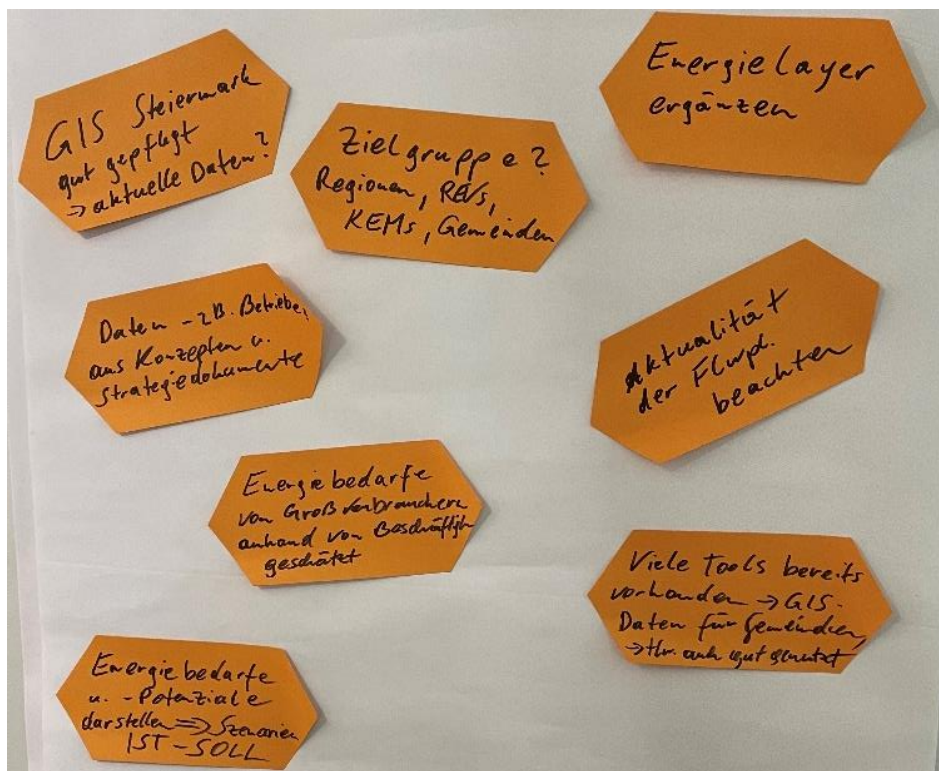 GIS Steiermark
gut gepflegt
→ aktuelle Daten?
Zielgruppe?
Regionen, REVs,
KEMs, Gemeinden
Energielayer
ergänzen
Daten - zB. Betriebe,
aus Konzepten u.
Strategiedokumente
Aktualität
der Flwpl.
beachten
Energiebedarfe
von Großverbrauchern
anhand von
geschätzt
Viele Tools bereits
vorhanden → GIS-
Daten für Gemeinden,
→ auch gut genutzt
Energiebedarfe
u. -Potenziale
darstellen => Szenarien
IST-SOLL